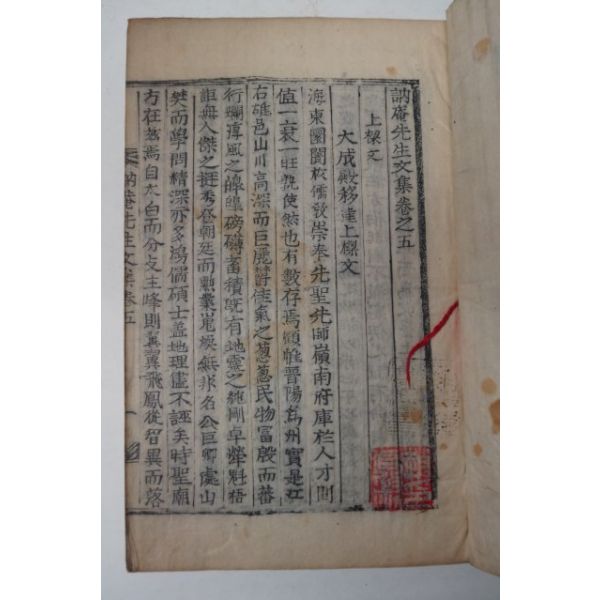 訥庵先生文集卷之五
上樑文
大成殿移建上樑文
海東國閭校儒敎崇奉先聖先師嶺南府庫於人才間
値一衰一旺孰使然也有數存焉顧惟晉陽爲州實是江
右雄邑山川高深而巨麗鬱佳氣之葱葱民物富殷而蕃
衍斕薄風之皥皥磅礴蓄積旣有地靈之純剛卓犖魁梧
詎無人傑之挺秀登朝廷而勳業嵬煥無非名公巨卿處山
樊而學問精深亦多鴻儒碩士盖地理儘不誣矣時聖廟
方在玆焉自太白而分支主峰則翼翼飛鳳從智異而落
訥菴先生文集卷五
一